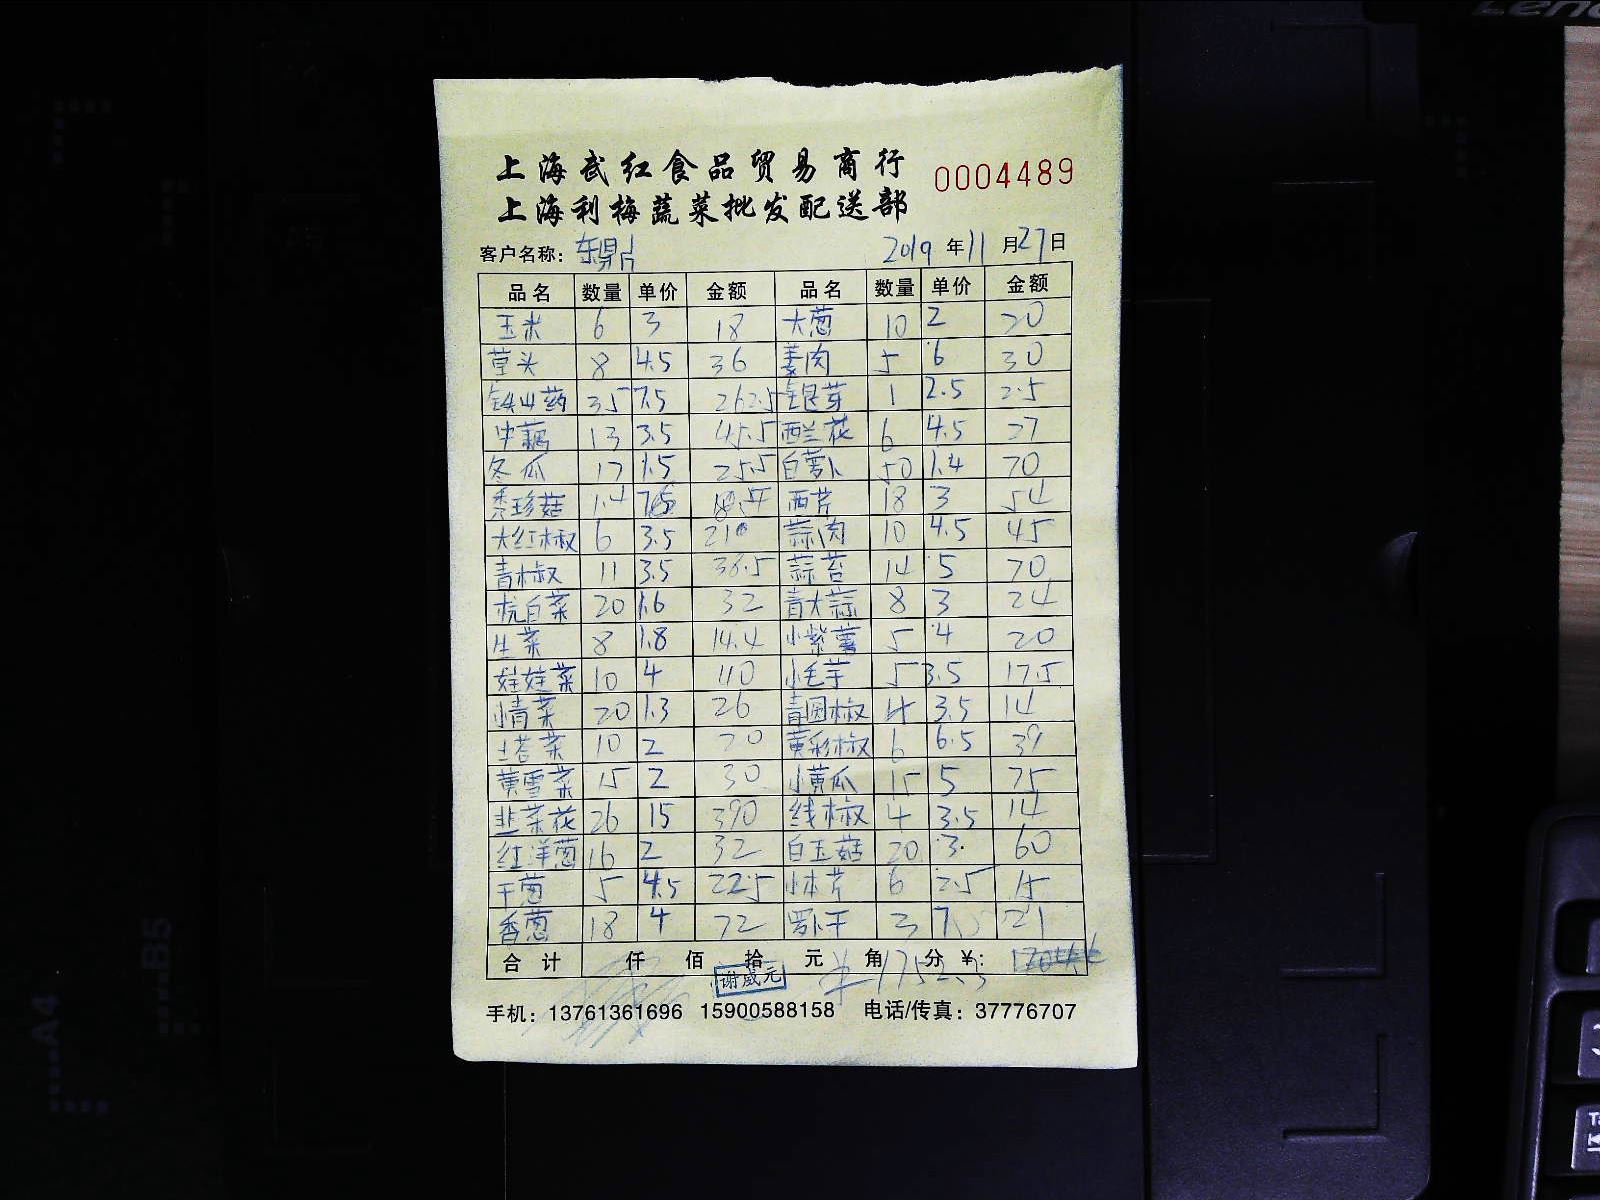 上海武红食品贸易商行
0004489
上海利梅蔬菜批发配送部
客户名称: 东鼎 2019 年 11 月 27 日
品名 数量 单价 金额 品名 数量 单价 金额
玉米 6 3 18 大葱 10 2 20
草头 8 4.5 36 姜肉 5 6 30
铁山药 35 7.5 262.5 银芽 1 2.5 2.5
中藕 13 3.5 45.5 西兰花 6 4.5 27
冬瓜 17 1.5 25.5 白萝卜 50 1.4 70
秀珍菇 1.4 西芹 18 3 54
大红椒 6 3.5 21 蒜肉 10 4.5 45
青椒 11 3.5 38.5 蒜苔 14 5 70
杭白菜 20 1.6 32 青大蒜 8 3 24
生菜 8 1.8 14.4 小紫薯 5 4 20
娃娃菜 10 4 40 小毛芋 5 3.5 17.5
小青菜 20 1.3 26 青圆椒 4 3.5 14
塔菜 10 2 20 黄彩椒 6 6.5 39
黄雪菜 15 2 30 小黄瓜 15 5 75
韭菜花 26 15 390 线椒 4 3.5 14
红洋葱 16 2 32 白玉菇 20 3 60
干葱 5 4.5 22.5 小本芹 6 2.5 15
香葱 18 4 72 罗卜干 3 7 21
合计 仟 佰 拾 元 角 分 ¥:
谢威元
手机: 13761361696 15900588158 电话/传真: 37776707